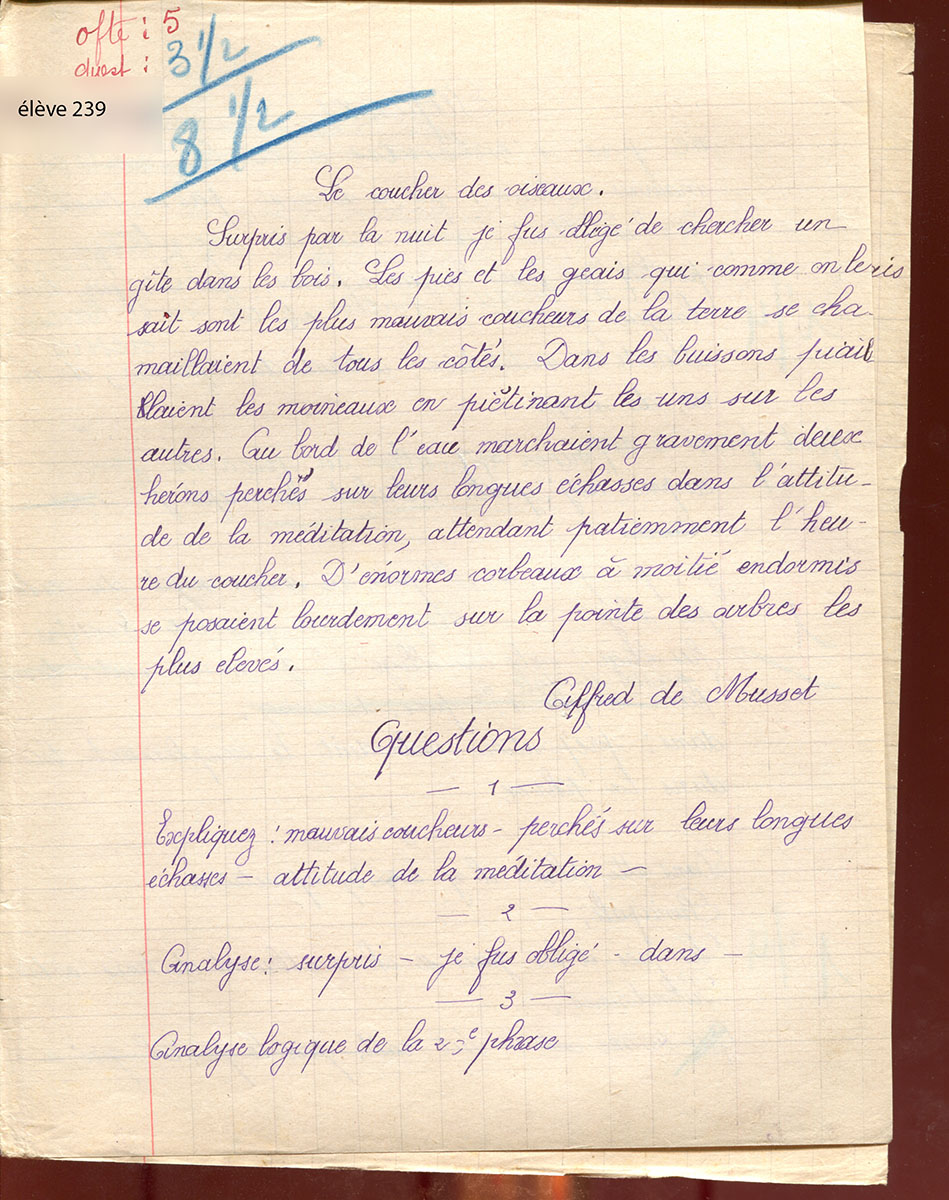 ofte : 5
quest : 3 1/2
élève 239
8 1/2
Le coucher des oiseaux.
Surpris par la nuit je fus obligé de chercher un
gîte dans les bois. Les pies et les geais qui comme on le ris
sait sont les plus mauvais coucheurs de la terre se cha-
maillaient de tous les côtés. Dans les buissons piail
laient les moineaux en piétinant les uns sur les
autres. Au bord de l'eau marchaient gravement deux
hérons perchés sur leurs longues échasses dans l'attitu-
de de la méditation, attendant patiemment l'heu-
re du coucher. D'enormes corbeaux à moitié endormis
se posaient lourdement sur la pointe des arbres les
plus elevés.
Alffred de Musset
Questions
— 1 —
Expliquez : mauvais coucheurs - perchés sur leurs longues
échasses - attitude de la méditation -
— 2 —
Analyse : surpris - je fus obligé - dans -
— 3 —
Analyse logique de la 2e phrase